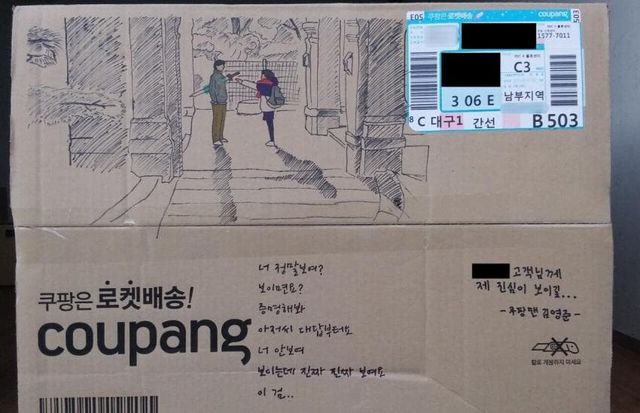 E05
쿠팡은 로켓배송
coupang
503
1577-7011
C3
3 06 E
남부지역
8 C 대구1 간선 B 503
쿠팡은 로켓배송!
coupang
너 정말보여?
보이면요?
증명해봐
아저씨 대답부터요
너 안보여
보이는데 진짜 진짜 보여요
이 검..
고객님께
제 진심이 보이길...
- 쿠팡맨 김영준 -
칼로 개봉하지 마세요